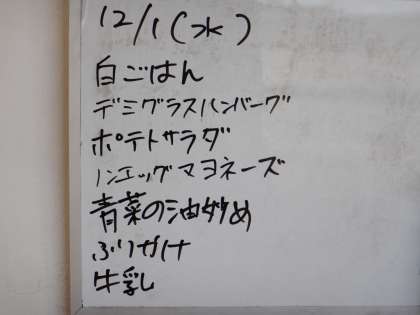 12/1(水)
白ごはん
デミグラスハンバーグ
ポテトサラダ
ノンエッグマヨネーズ
青菜の油炒め
ふりかけ
牛乳